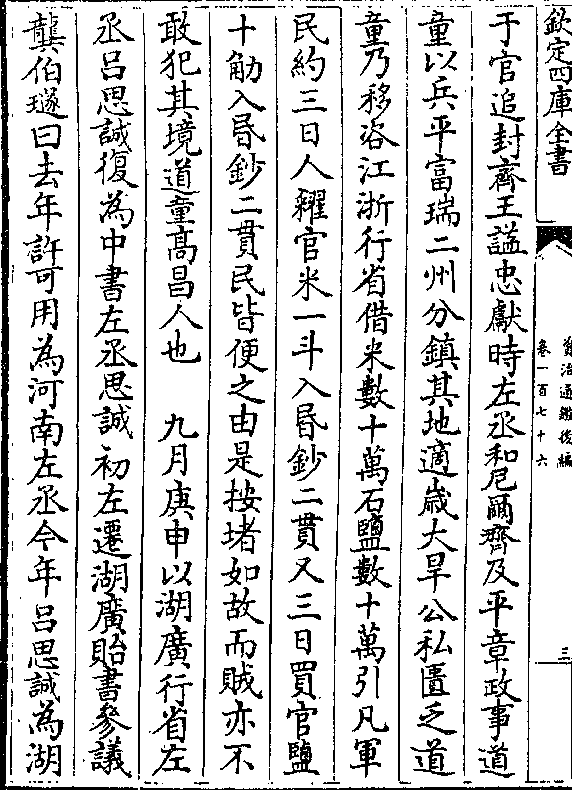 欽定四庫全書
資治通鑑後編
卷一百七十六
三
于官追封齊王諡忠獻時左丞和尼爾齊及平章政事道
童以兵平富瑞二州分鎮其地適歲大旱公私匱乏道
童乃移咨江浙行省借米數十萬石鹽數十萬引凡軍
民約三日人糴官米一斗入昏鈔二貫又三日買官鹽
十觔入昏鈔二貫民皆便之由是按堵如故而賊亦不
敢犯其境道童高昌人也　九月庚申以湖廣行省左
丞呂思誠復為中書左丞思誠初左遷湖廣貽書參議
龔伯璲曰去年許可用為河南左丞今年呂思誠為湖